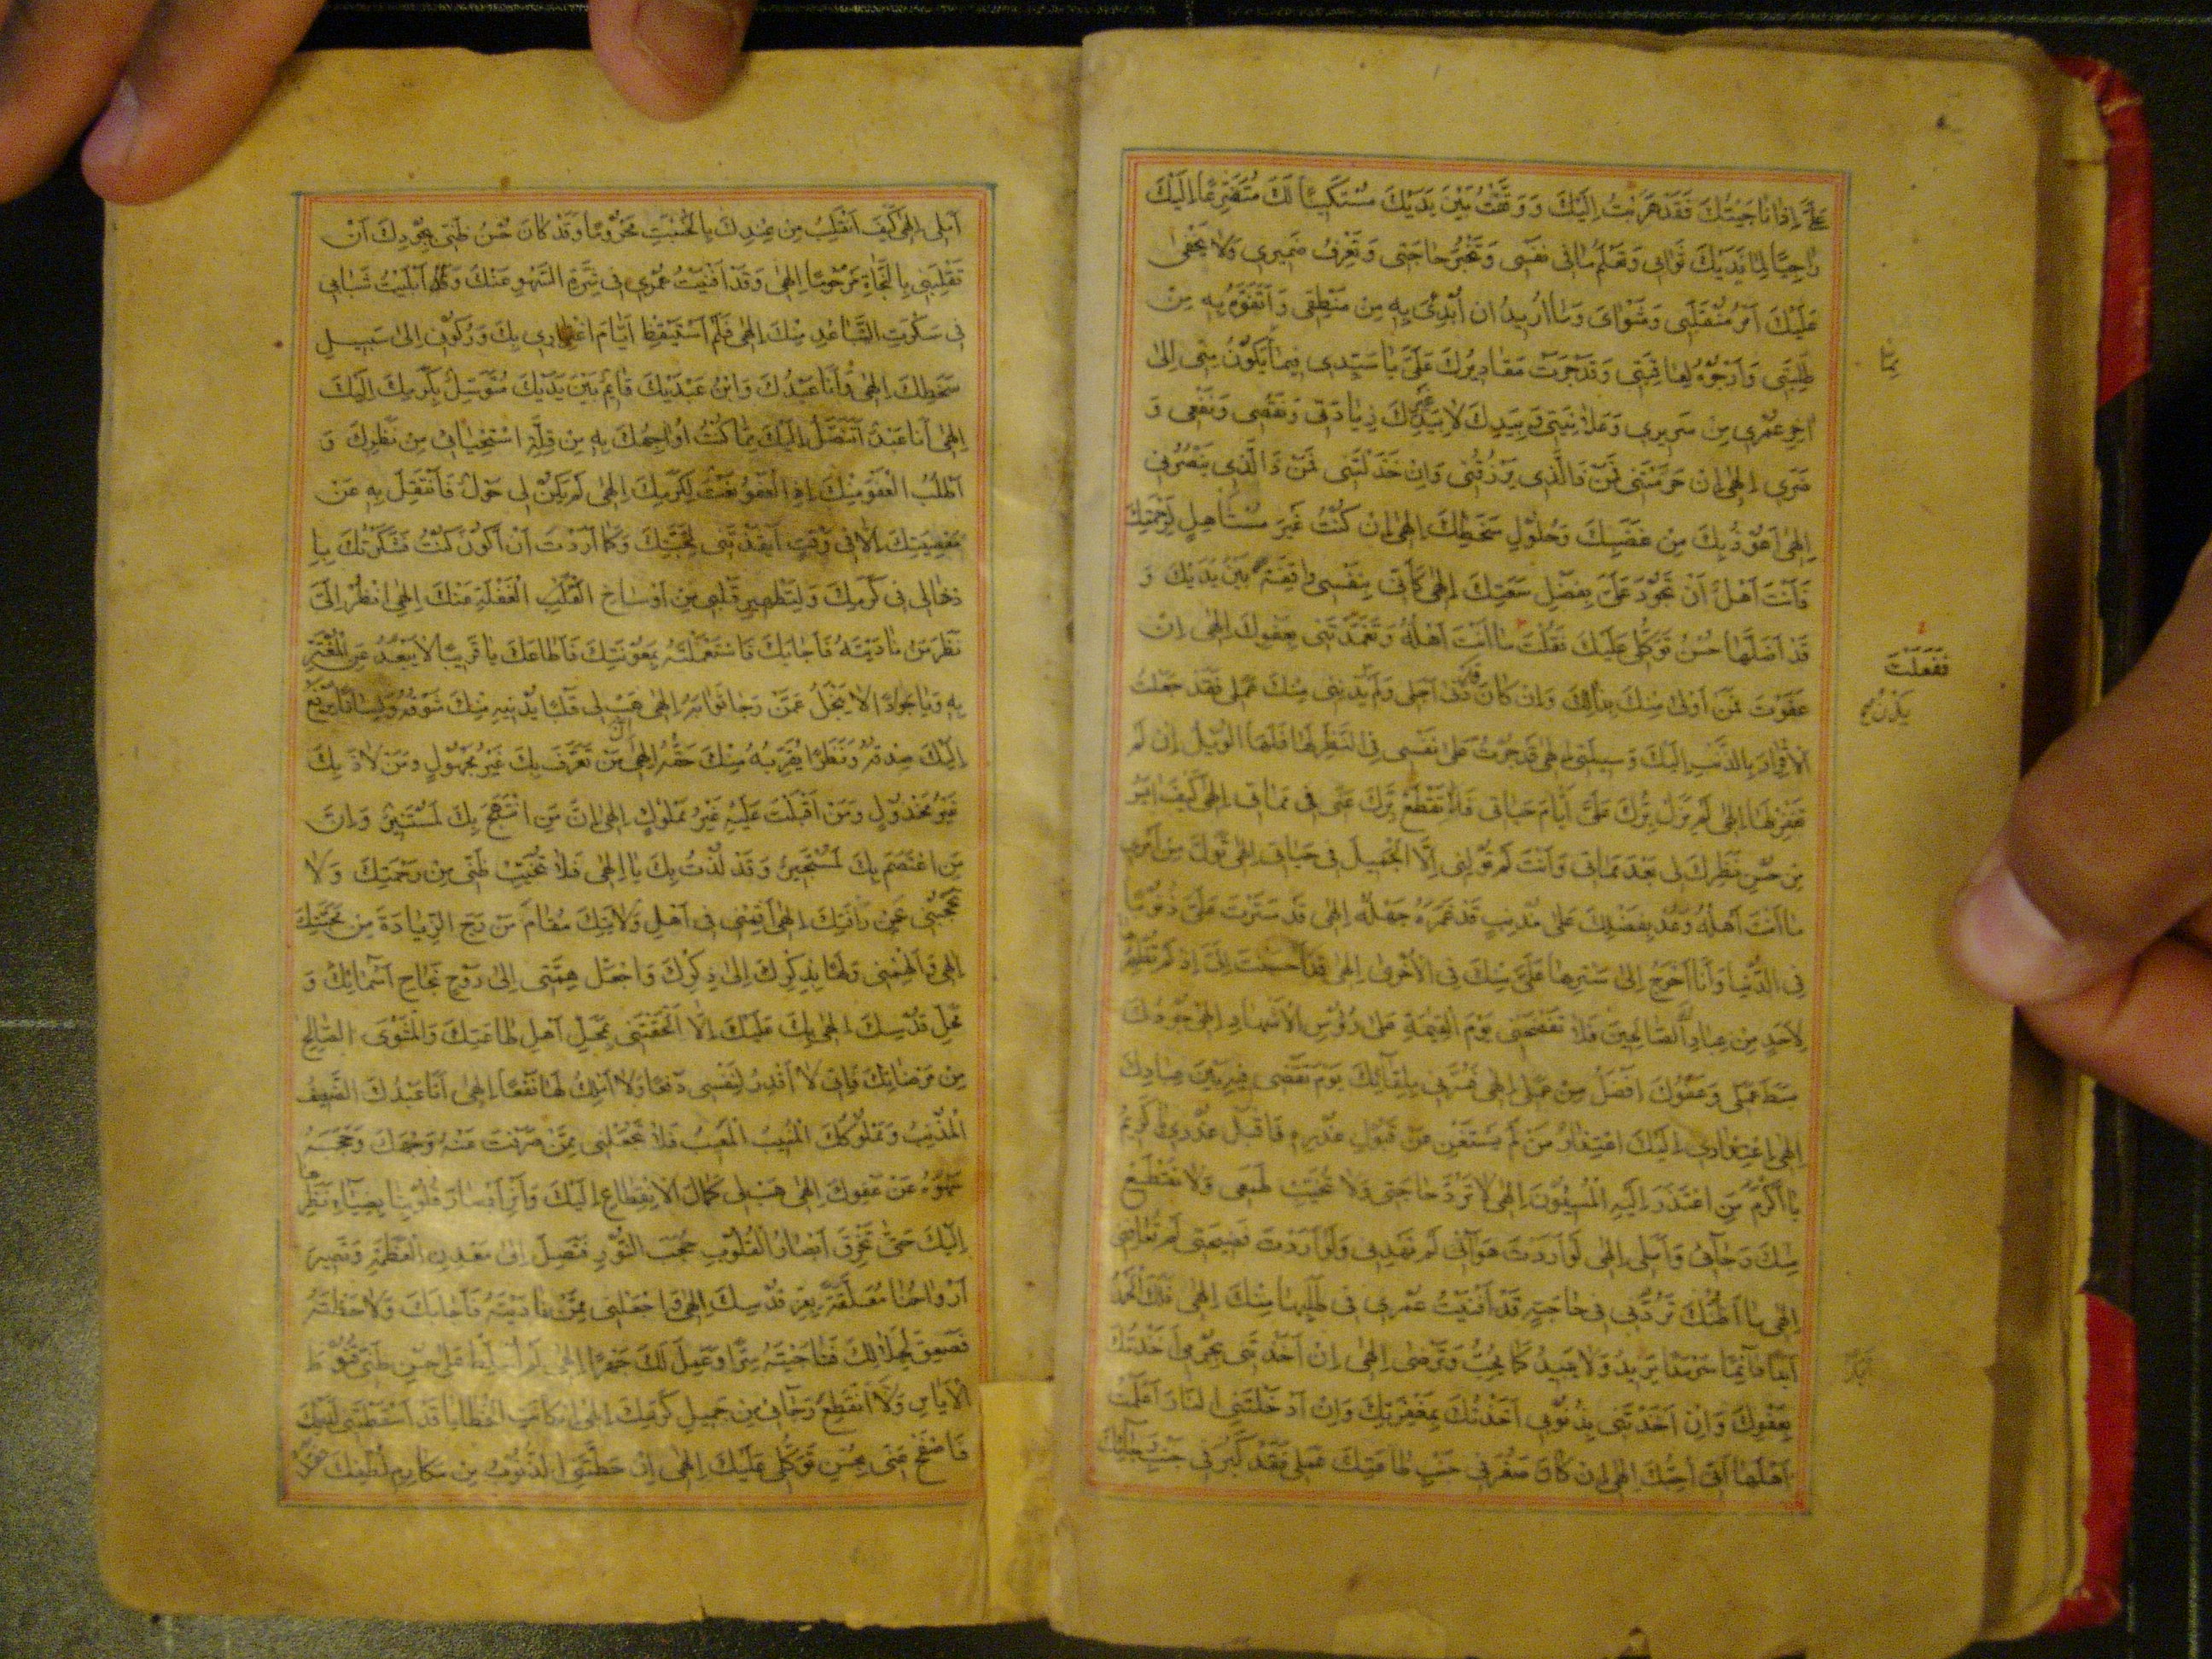 عَلَيَّ اِذا ناجَيْتُكَ فَقَدْ هَرَبْتُ اِلَيْكَ وَ وَقَفْتُ بَيْنَ يَدَيْكَ مُسْتَكيناً لَكَ مُتَضَرِّعاً اِلَيْكَ
راجِياً لِما لَدَيْكَ ثَوابي وَ تَعْلَمُ ما في نَفْسي وَ تَخْبُرُ حاجَتي وَ تَعْرِفُ ضَميري وَ لا يَخْفى
عَلَيْكَ اَمْرُ مُنْقَلَبي وَ مَثْوايَ وَ ما اُريدُ ان اُبْدِئَ بِهِ مِنْ مَنْطِقي وَ اَتَفَوَّهُ بِهِ مِنْ
طَلِبَتي وَ اَرْجُوهُ لِعافِيَتي وَ قَدْ جَرَتْ مَقاديرُكَ عَلَيَّ يا سَيِّدي فيما يَكُونُ مِنّي اِلى
اخِرِ عُمْري مِنْ سَريرَتي وَ عَلانِيَتي وَ بِيَدِكَ لا بِيَدِ غَيْرِكَ زِيادَتي وَ نَقْصي وَ نَفْعي وَ
ضَرّي اِلهي اِنْ حَرَمْتَني فَمَنْ ذَا الَّذي يَرْزُقُني وَ اِنْ خَذَلْتَني فَمَنْ ذَا الَّذي يَنْصُرُني
اِلهي اَعُوذُ بِكَ مِنْ غَضَبِكَ وَ حُلُولِ سَخَطِكَ اِلهي اِنْ كُنْتُ غَيْرَ مُسْتَأهِلٍ لِرَحْمَتِكَ
فَاَنْتَ اَهْلٌ اَنْ تَجُودَ عَلَيَّ بِفَضْلِ سَعَتِكَ اِلهي كَاَنّي بِنَفْسي واقِفَةٌ بَيْنَ يَدَيْكَ وَ
قَدْ اَظَلَّها حُسْنُ تَوَكُّلي عَلَيْكَ فَقُلْتَ ما اَنْتَ اَهْلُهُ وَ تَغَمَّدْتَني بِعَفْوِكَ اِلهي اِنْ
عَفَوْتَ فَمَنْ اَوْلى مِنْكَ بِذلِكَ وَ اِنْ كانَ قَدْ دَنى اَجَلي وَ لَمْ يُدْنِني مِنْكَ عَمَلي فَقَدْ جَعَلْتُ
الْاِقْرارَ بِالذَّنْبِ اِلَيْكَ وَسيلَتي اِلهي قَدْ جُرْتُ عَلى نَفْسي فِي النَّظَرِ لَها فَلَهَا الْوَيْلُ اِنْ لَمْ
تَغْفِرْ لَها اِلهي لَمْ يَزَلْ بِرُّكَ عَلَيَّ اَيّامَ حَياتي فَلا تَقْطَعْ بِرَّكَ عَنّي في مَماتي اِلهي كَيْفَ ايَسُ
مِنْ حُسْنِ نَظَرِكَ لي بَعْدَ مَماتي وَ اَنْتَ لَمْ تُوَلِّني اِلَّا الْجَميلَ في حَياتي اِلهي تَوَلَّ مِنْ اَمْري
ما اَنْتَ اَهْلُهُ وَ عُدْ بِفَضْلِكَ عَلى مُذْنِبٍ قَدْ غَمَرَهُ جَهْلُهُ اِلهي قَدْ سَتَرْتَ عَلَيَّ ذُنُوباً
فِي الدُّنْيا وَ اَنَا اَحْوَجُ اِلى سَتْرِها عَلَيَّ مِنْكَ فِي الْاُخْرى اِلهي قَدْ اَحْسَنْتَ اِلَيَّ اِذْ لَمْ تُظْهِرْها
لِاَحَدٍ مِنْ عِبادِكَ الصّالِحينَ فَلا تَفْضَحْني يَوْمَ الْقِيمَةِ عَلى رُؤُسِ الْاَشْهادِ اِلهي جُودُكَ
بَسَطَ اَمَلي وَ عَفْوُكَ اَفْضَلُ مِنْ عَمَلي اِلهي فَسُرَّني بِلِقآئِكَ يَوْمَ تَقْضي فيهِ بَيْنَ عِبادِكَ
اِلهي اِعْتِذاري اِلَيْكَ اعْتِذارُ مَنْ لَمْ يَسْتَغْنِ عَنْ قَبُولِ عُذْرِهِ فَاقْبَلْ عُذْري يا كَريمُ
يا اَكْرَمَ مَنِ اعْتَذَرَ اِلَيْهِ الْمُسيئُونَ اِلهي لا تَرُدَّ حاجَتي وَ لا تُخَيِّبْ طَمَعي وَ لا تَقْطَعْ
مِنْكَ رَجائي وَ اَمَلي اِلهي لَوْ اَرَدْتَ هَواني لَمْ تَهْدِني وَ لَوْ اَرَدْتَ فَضيحَتي لَمْ تُعافِني
اِلهي ما اَظُنُّكَ تَرُدُّني في حاجَةٍ قَدْ اَفْنَيْتُ عُمْري في طَلَبِها مِنْكَ اِلهي فَلَكَ الْحَمْدُ
اَبَداً دآئِماً سَرْمَداً يَزيدُ وَ لا يَبيدُ كَما تُحِبُّ وَ تَرْضى اِلهي اِنْ اَخَذْتَني بِجُرْمي اَخَذْتُكَ
بِعَفْوِكَ وَ اِنْ اَخَذْتَني بِذُنُوبي اَخَذْتُكَ بِمَغْفِرَتِكَ وَ اِنْ اَدْخَلْتَنِي النّارَ اَعْلَمْتُ
اَهْلَها اَنّي اُحِبُّكَ اِلهي اِنْ كانَ صَغُرَ في جَنْبِ طاعَتِكَ عَمَلي فَقَدْ كَبُرَ في جَنْبِ رَجآئِكَ
فَفَعَلْتَ
اَمَلي اِلهي كَيْفَ اَنْقَلِبُ مِنْ عِنْدِكَ بِالْخَيْبَةِ مَحْرُوماً وَ قَدْ كانَ حُسْنُ ظَنّي بِجُودِكَ اَنْ
تَقْلِبَني بِالنَّجاةِ مَرْحُوماً اِلهي وَ قَدْ اَفْنَيْتُ عُمْري في شِرَّةِ السَّهْوِ عَنْكَ وَ اَبْلَيْتُ شَبابي
في سَكْرَةِ التَّباعُدِ مِنْكَ اِلهي فَلَمْ اَسْتَيْقِظْ اَيّامَ اغْتِراري بِكَ وَ رُكُوني اِلى سَبيلِ
سَخَطِكَ اِلهي وَ اَنَا عَبْدُكَ وَ ابْنُ عَبْدَيْكَ قائِمٌ بَيْنَ يَدَيْكَ مُتَوَسِّلٌ بِكَرَمِكَ اِلَيْكَ
اِلهي اَنَا عَبْدٌ اَتَنَصَّلُ اِلَيْكَ مِمّا كُنْتُ اُواجِهُكَ بِهِ مِنْ قِلَّةِ اسْتِحْيائي مِنْ نَظَرِكَ وَ
اَطْلُبُ الْعَفْوَ مِنْكَ اِذِ الْعَفْوُ نَعْتٌ لِكَرَمِكَ اِلهي لَمْ يَكُنْ لي حَوْلٌ فَاَنْتَقِلَ بِهِ عَنْ
مَعْصِيَتِكَ اِلّا في وَقْتٍ اَيْقَظْتَني لِمَحَبَّتِكَ وَ كَما اَرَدْتَ اَنْ اَكُونَ كُنْتُ فَشَكَرْتُكَ بِاِ
دْخالي في كَرَمِكَ وَ لِتَطْهيرِ قَلْبي مِنْ اَوْساخِ الْغَفْلَةِ عَنْكَ اِلهي انْظُرْ اِلَيَّ
نَظَرَ مَنْ نادَيْتَهُ فَاَجابَكَ وَ اسْتَعْمَلْتَهُ بِمَعُونَتِكَ فَاَطاعَكَ يا قَريباً لا يَبْعُدُ عَنِ الْمُغْتَرِّ
بِهِ وَ يا جَواداً لا يَبْخَلُ عَمَّنْ رَجا ثَوابَهُ اِلهي هَبْ لي قَلْباً يُدْنيهِ مِنْكَ شَوْقُهُ وَ لِساناً يُرْفَعُ
اِلَيْكَ صِدْقُهُ وَ نَظَراً يُقَرِّبُهُ مِنْكَ حَقُّهُ اِلهي اِنَّ مَنْ تَعَرَّفَ بِكَ غَيْرُ مَجْهُولٍ وَ مَنْ لاذَ بِكَ
غَيْرُ مَخْذُولٍ وَ مَنْ اَقْبَلْتَ عَلَيْهِ غَيْرُ مَمْلُوكٍ اِلهي اِنَّ مَنِ انْتَهَجَ بِكَ لَمُسْتَنيرٌ وَ اِنَّ
مَنِ اعْتَصَمَ بِكَ لَمُسْتَجيرٌ وَ قَدْ لُذْتُ بِكَ يا اِلهي فَلا تُخَيِّبْ ظَنّي مِنْ رَحْمَتِكَ وَ لا
تَحْجُبْني عَنْ رَأفَتِكَ اِلهي اَقِمْني في اَهْلِ وَلايَتِكَ مُقامَ مَنْ رَجَا الزِّيادَةَ مِنْ مَحَبَّتِكَ
اِلهي وَ اَلْهِمْني وَلَهاً بِذِكْرِكَ اِلى ذِكْرِكَ وَ اجْعَلْ هِمَّتي اِلى رَوْحِ نَجاحِ اَسْمائِكَ وَ
مَحَلِّ قُدْسِكَ اِلهي بِكَ عَلَيْكَ اِلّا اَلْحَقْتَني بِمَحَلِّ اَهْلِ طاعَتِكَ وَ الْمَثْوَى الصّالِحِ
مِنْ مَرْضاتِكَ فَاِنّي لا اَقْدِرُ لِنَفْسي دَفْعاً وَ لا اَمْلِكُ لَها نَفْعاً اِلهي اَنَا عَبْدُكَ الضَّعيفُ
الْمُذْنِبُ وَ مَمْلُوكُكَ الْمُنيبُ الْمَعيبُ فَلا تَجْعَلْني مِمَّنْ صَرَفْتَ عَنْهُ وَجْهَكَ وَ حَجَبَهُ
سَهْوُهُ عَنْ عَفْوِكَ اِلهي هَبْ لي كَمالَ الْاِنْقِطاعِ اِلَيْكَ وَ اَنِرْ اَبْصارَ قُلُوبِنا بِضِيآءِ نَظَرِها
اِلَيْكَ حَتّى تَخْرِقَ اَبْصارُ الْقُلُوبِ حُجُبَ النُّورِ فَتَصِلَ اِلى مَعْدِنِ الْعَظَمَةِ وَ تَصيرَ
اَرْواحُنا مُعَلَّقَةً بِعِزِّ قُدْسِكَ اِلهي وَ اجْعَلْني مِمَّنْ نادَيْتَهُ فَاَجابَكَ وَ لاحَظْتَهُ
فَصَعِقَ لِجَلالِكَ فَناجَيْتَهُ سِرّاً وَ عَمِلَ لَكَ جَهْراً اِلهي لَمْ اُسَلِّطْ عَلى حُسْنِ ظَنّي قُنُوطَ
الْاَياسِ وَ لَا انْقَطَعَ رَجآئي مِنْ جَميلِ كَرَمِكَ اِلهي اِنْ كانَتِ الْخَطايا قَدْ اَسْقَطَتْني لَدَيْكَ
فَاصْفَحْ عَنّي بِحُسْنِ تَوَكُّلي عَلَيْكَ اِلهي اِنْ حَطَّتْنِي الذُّنُوبُ مِنْ مَكارِمِ لُطْفِكَ